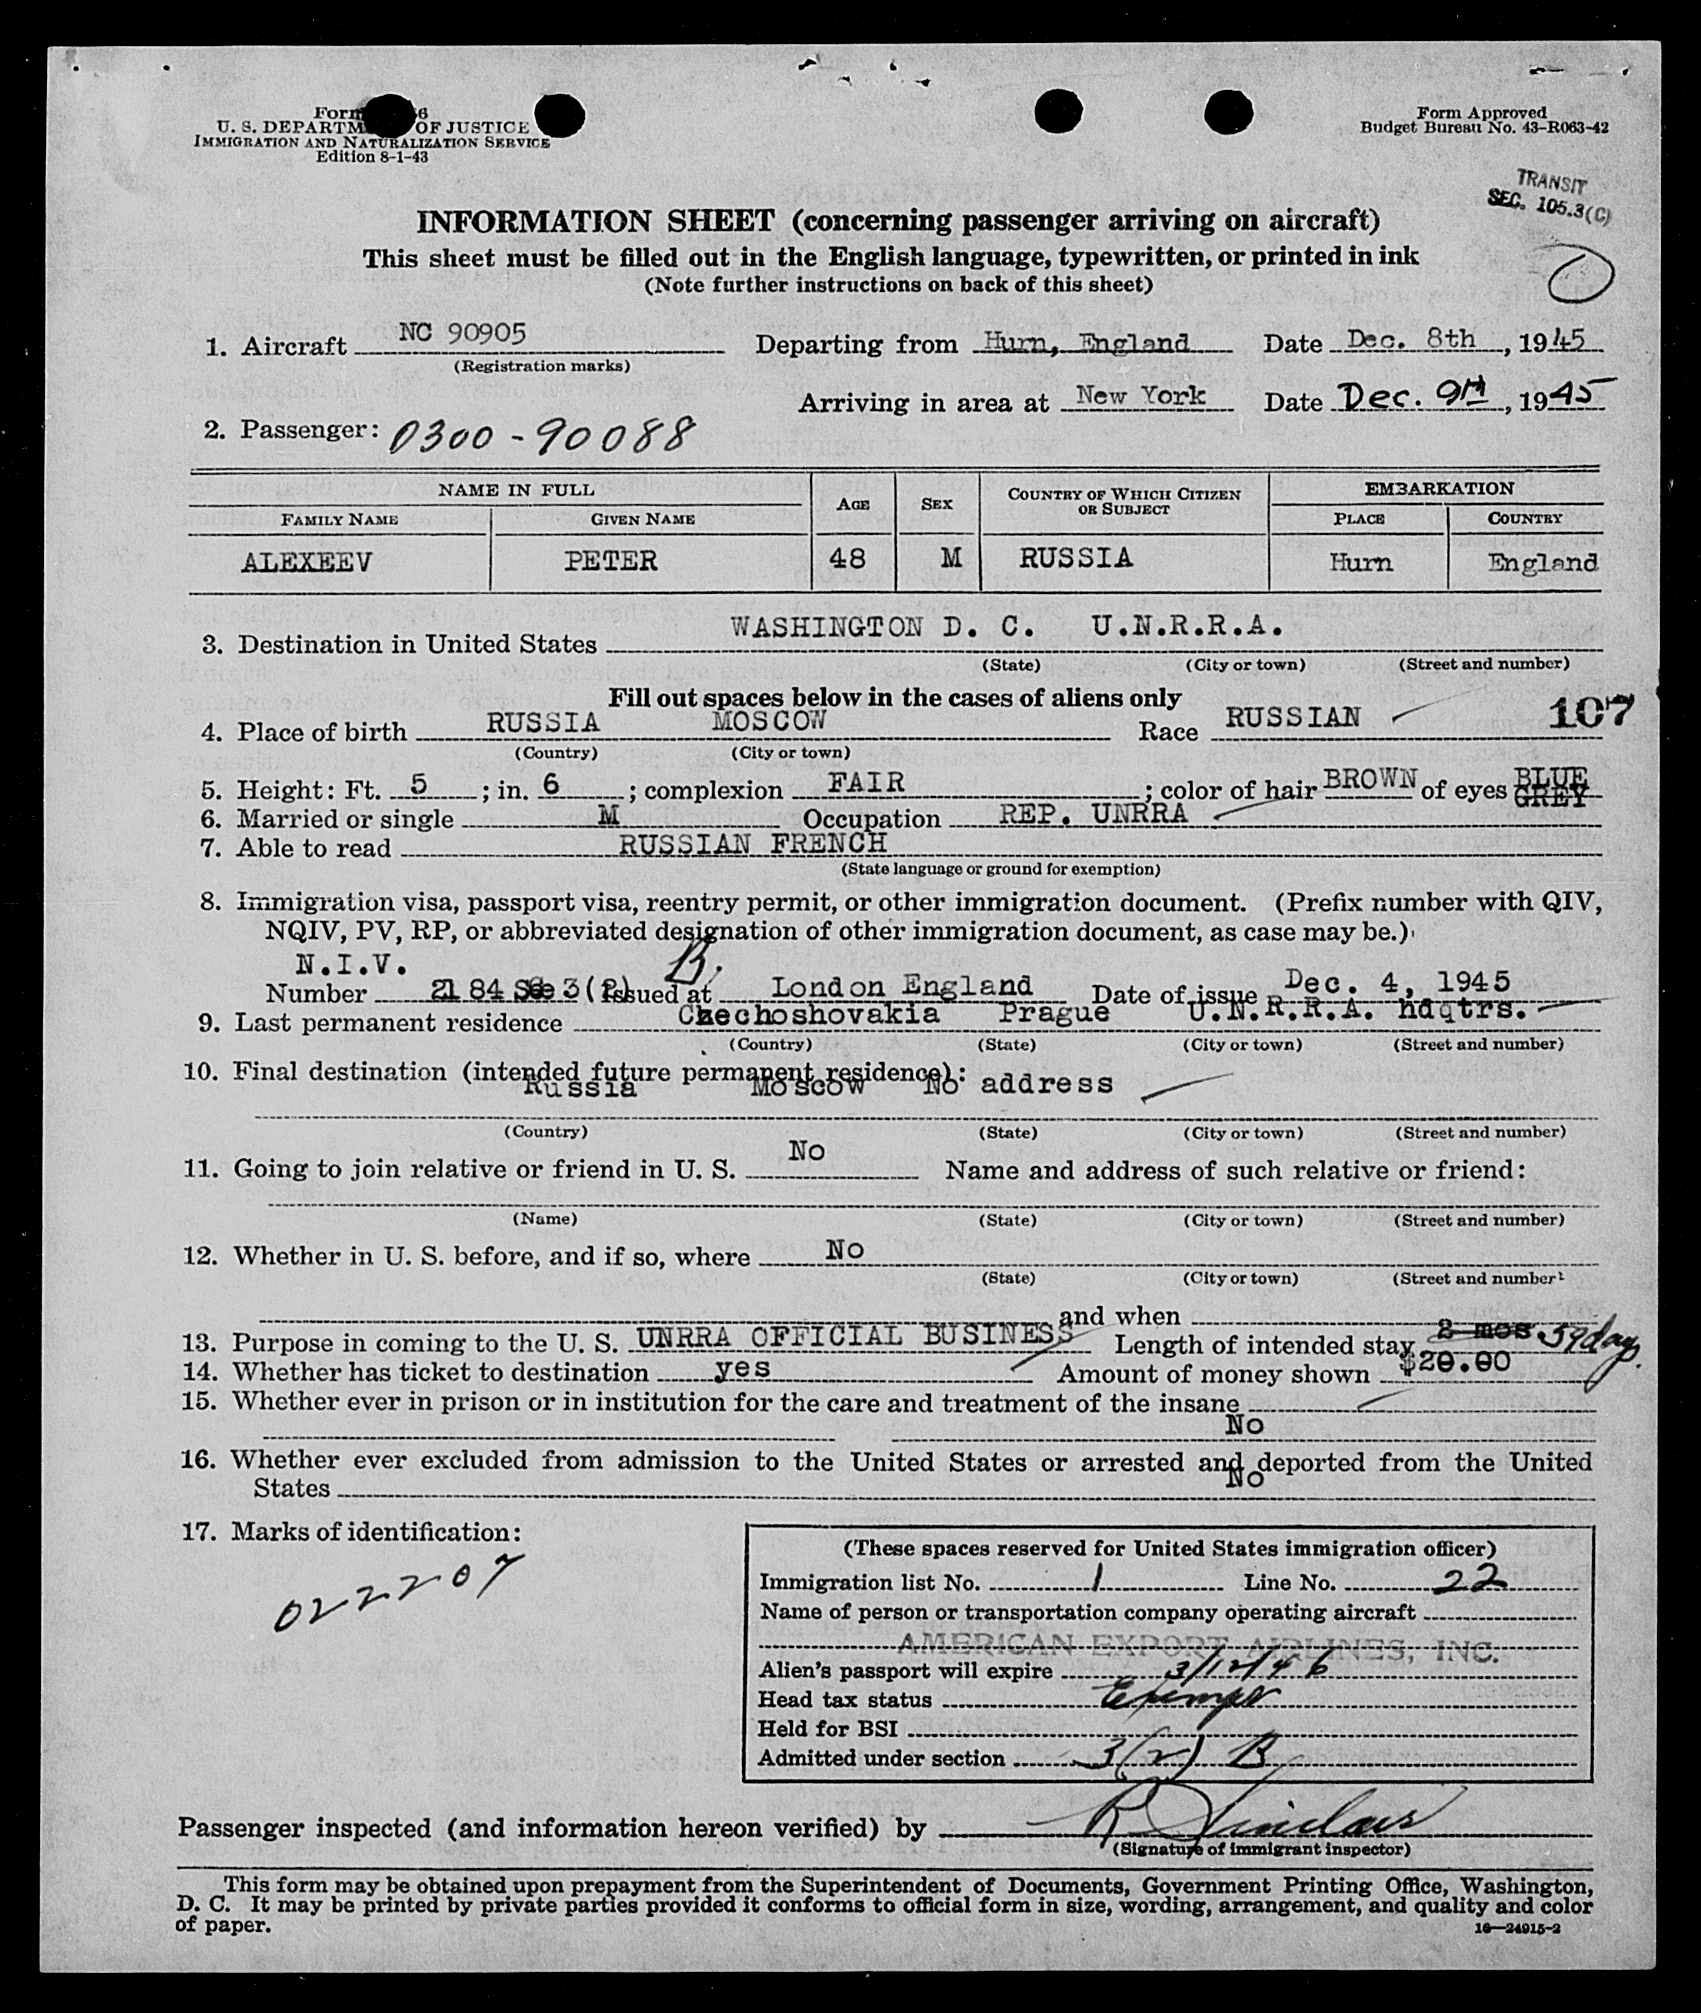 Form 6
U. S. DEPARTM OF JUSTICE
IMMIGRATION AND NATURALIZATION SERVICE
Edition 8-1-43
Form Approved
Budget Bureau No. 43-R063-42
TRANSIT
SEC. 105.3(C)
INFORMATION SHEET (concerning passenger arriving on aircraft)
This sheet must be filled out in the English language, typewritten, or printed in ink
(Note further instructions on back of this sheet)
1. Aircraft NC 90905 Departing from Hurn, England Date Dec. 8th, 1945
(Registration marks)
Arriving in area at New York Date Dec. 9TH, 1945
2. Passenger: 0300-90088
NAME IN FULL AGE SEX COUNTRY OF WHICH CITIZEN OR SUBJECT EMBARKATION
FAMILY NAME GIVEN NAME PLACE COUNTRY
ALEXEEV PETER 48 M RUSSIA Hurn England
3. Destination in United States WASHINGTON D. C. U.N.R.R.A.
(State) (City or town) (Street and number)
Fill out spaces below in the cases of aliens only
4. Place of birth RUSSIA MOSCOW Race RUSSIAN 107
(Country) (City or town)
5. Height: Ft. 5; in. 6; complexion FAIR; color of hair BROWN of eyes BLUE GREY
6. Married or single M Occupation REP. UNRRA
7. Able to read RUSSIAN FRENCH
(State language or ground for exemption)
8. Immigration visa, passport visa, reentry permit, or other immigration document. (Prefix number with QIV,
NQIV, PV, RP, or abbreviated designation of other immigration document, as case may be.)
N.I.V. B.
Number 2184 Sec 3(2) Issued at London England Date of issue Dec. 4, 1945
9. Last permanent residence Czechoshovakia Prague U.N.R.R.A. hdqtrs.
(Country) (State) (City or town) (Street and number)
10. Final destination (intended future permanent residence):
Russia Moscow No address
(Country) (State) (City or town) (Street and number)
11. Going to join relative or friend in U. S. No Name and address of such relative or friend:
(Name) (State) (City or town) (Street and number)
12. Whether in U. S. before, and if so, where No
(State) (City or town) (Street and number)
and when
13. Purpose in coming to the U. S. UNRRA OFFICIAL BUSINESS Length of intended stay 2 mos. 59 days
14. Whether has ticket to destination yes Amount of money shown $20.00
15. Whether ever in prison or in institution for the care and treatment of the insane
No
16. Whether ever excluded from admission to the United States or arrested and deported from the United
States No
17. Marks of identification:
022207
(These spaces reserved for United States immigration officer)
Immigration list No. 1 Line No. 22
Name of person or transportation company operating aircraft
AMERICAN EXPORT AIRLINES, INC.
Alien's passport will expire 3/12/46
Head tax status Exempt
Held for BSI
Admitted under section 3(2) B
Passenger inspected (and information hereon verified) by R Sinclair
(Signature of immigrant inspector)
This form may be obtained upon prepayment from the Superintendent of Documents, Government Printing Office, Washington,
D. C. It may be printed by private parties provided it conforms to official form in size, wording, arrangement, and quality and color
of paper.
16—24915-2